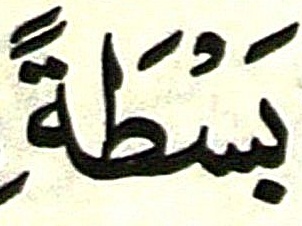 بَسْطَةً